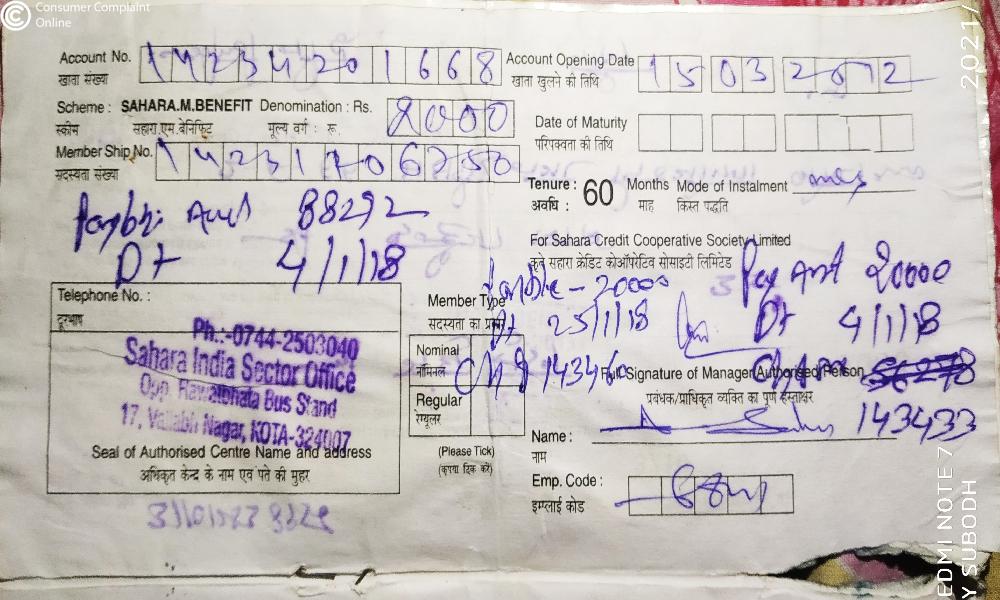 Consumer Complaint
Online
Account No. 14234201668 Account Opening Date 15032012
खाता संख्या खाता खुलने की तिथि
Scheme : SAHARA.M.BENEFIT Denomination : Rs. 2000
स्कीम सहारा.एम.बेनिफिट मूल्य वर्ग : रू.
Date of Maturity
परिपक्वता की तिथि
Member Ship No. 14231706750
सदस्यता संख्या
Tenure : 60 Months Mode of Instalment
अवधि : माह किस्त पद्धति
88292
Dt 4/1/18
For Sahara Credit Cooperative Society Limited
कृते सहारा क्रेडिट कोऑपरेटिव सोसाइटी लिमिटेड
Pay Amt 20000
Dt 4/1/18
20000
Dt 25/1/18
Telephone No. :
दूरभाष
Ph.:-0744-2503040
Sahara India Sector Office
Opp. Rawatbhata Bus Stand
17, Vallabh Nagar, KOTA-324007
Seal of Authorised Centre Name and address
अधिकृत केन्द्र के नाम एवं पते की मुहर
Member Type
सदस्यता का प्रकार
Nominal
नॉमिनल
Ch 143460
Regular
रेग्यूलर
(Please Tick)
(कृपया टिक करें)
Full Signature of Manager/Authorised Person
प्रबंधक/प्राधिकृत व्यक्ति का पूर्ण हस्ताक्षर
143433
Name :
नाम
Emp. Code :
इम्प्लाई कोड
2021/
EDMI NOTE 7
Y SUBODH